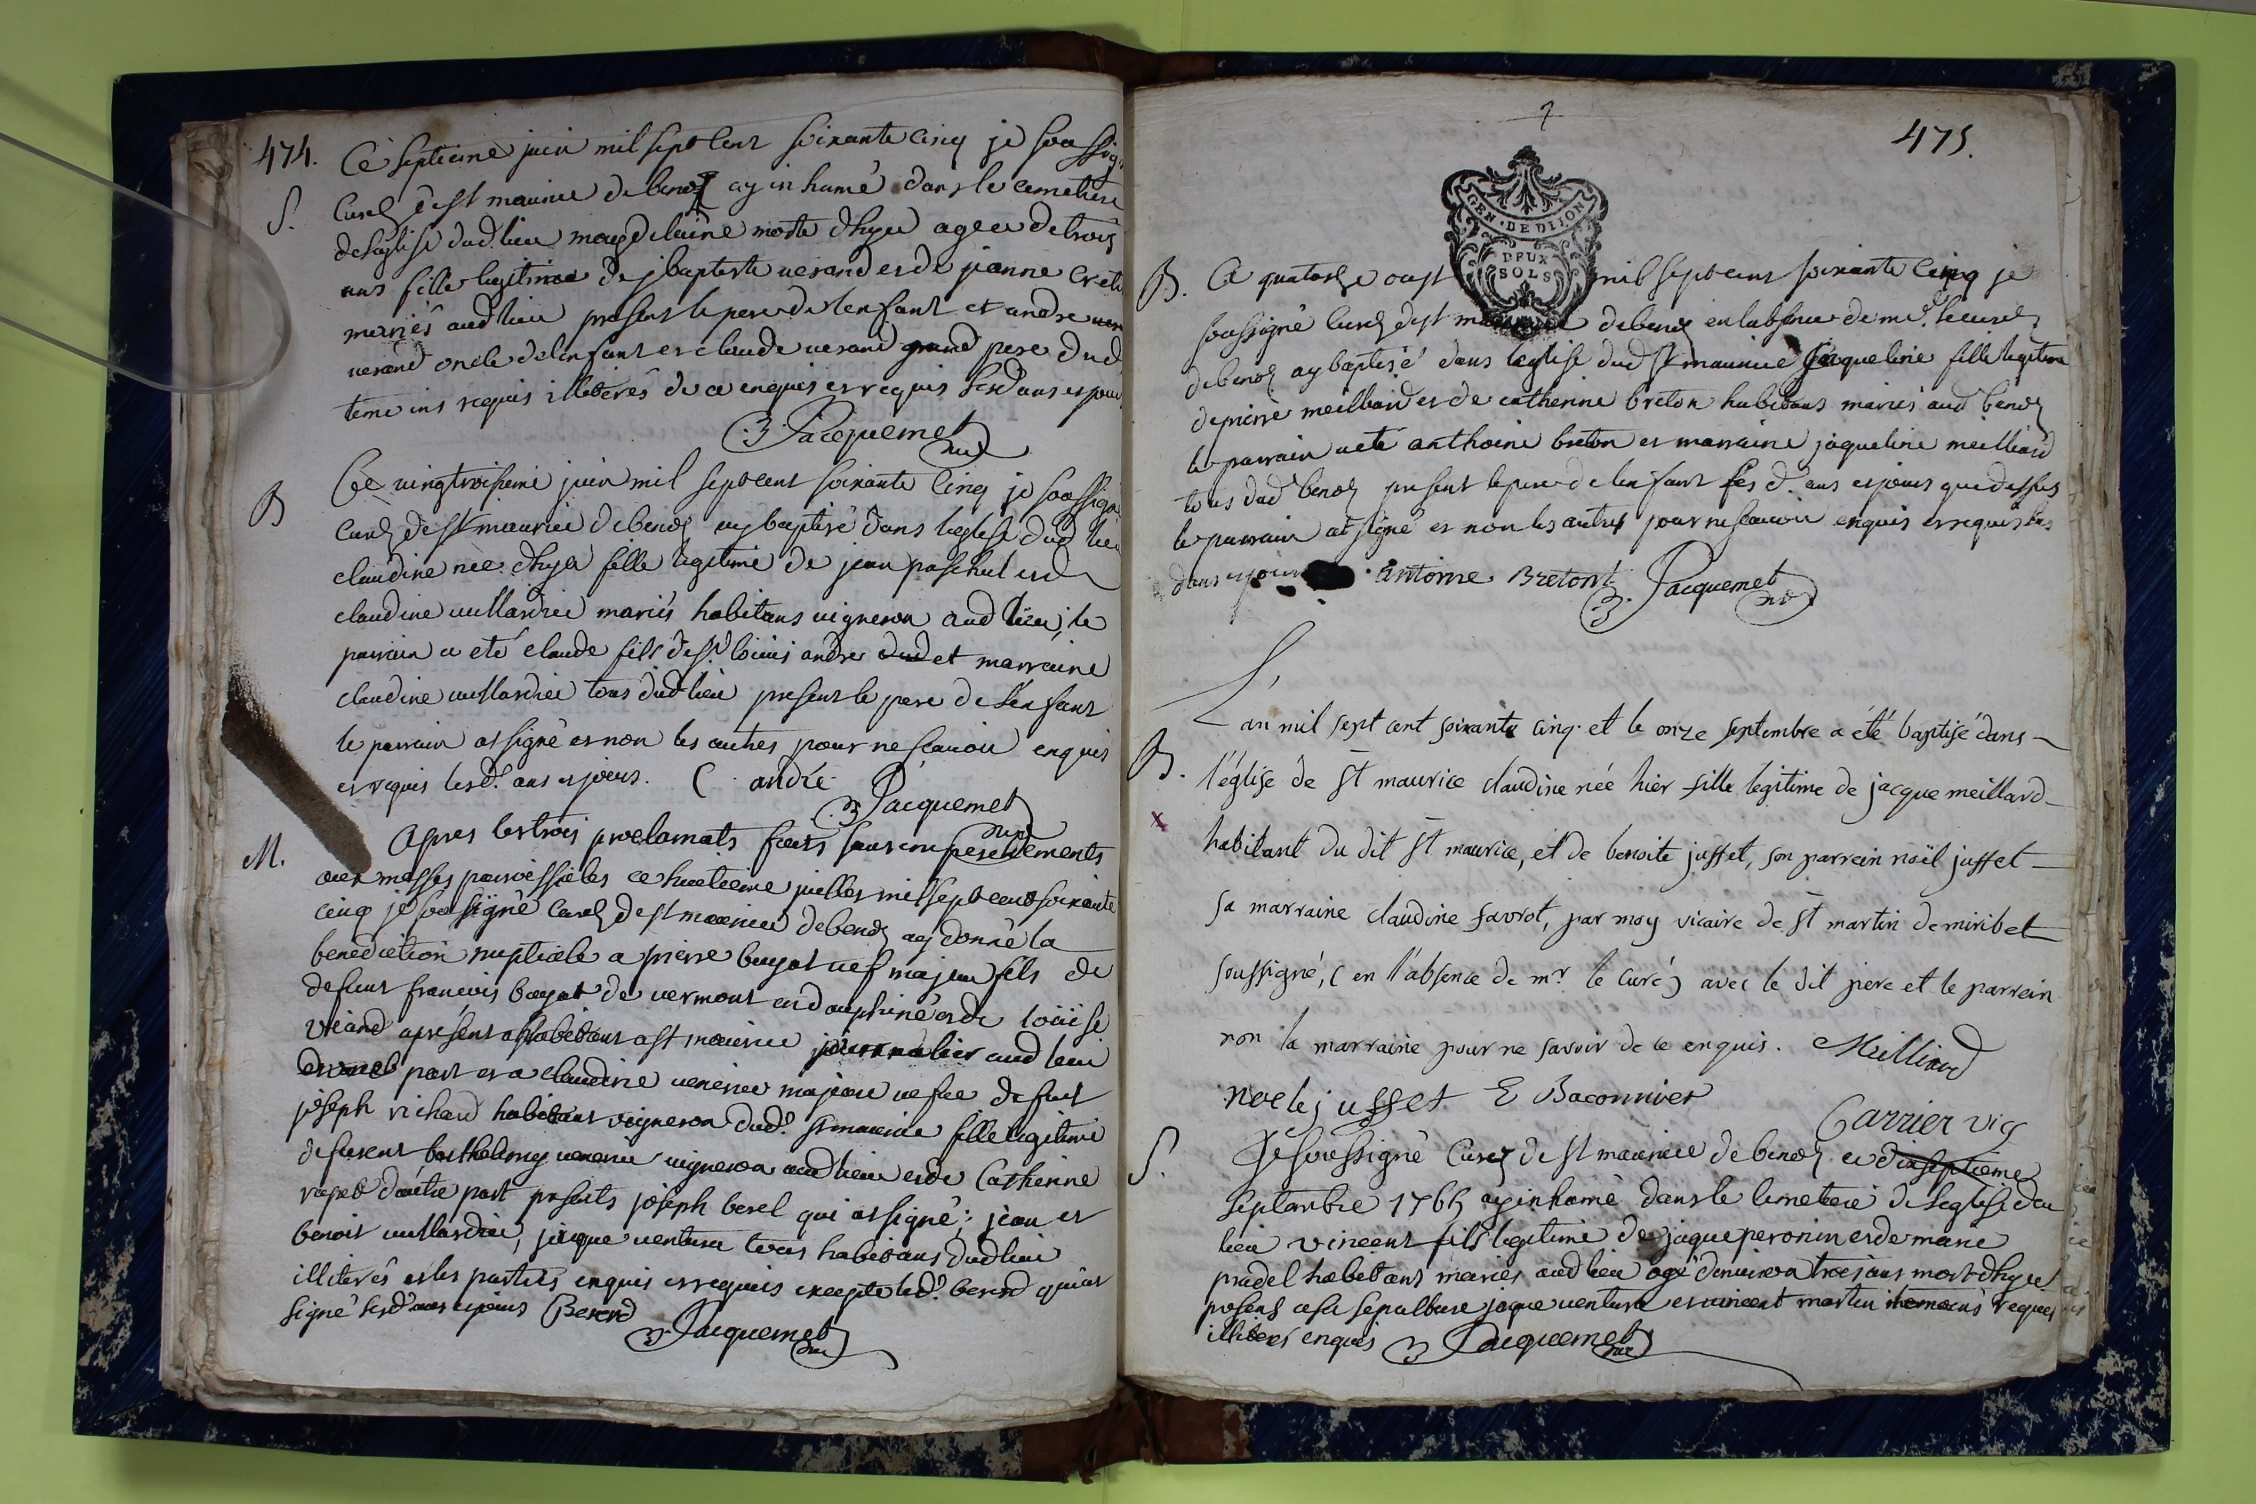 474.
Ce septieme juin mil sept cent soixante cinq je soussig
S.
curé de st maurice de benoz ay inhumé dans le cemetiere
de leglise dud. lieu magdelaine morte dhyer agee de trois
ans fille legitime de j baptiste uerand et de jeanne
mariés aud lieu present le pere de lenfant et andre
uerand oncle de lenfant et claude uerand grand pere dud
temoins requis illiterés de ce enquis et requis lesd ans et jour
Jacquemet curé
B
Ce uingtroisieme juin mil sept cent soixante cinq je soussigné
curé de st maurice de benoz ay baptisé dans leglise dud lieu
claudine née dhyer fille legitime de jean paschal et de
claudine uullardier mariés habitans uigneron aud lieu, le
parrain a eté claude fils de sr. loüis andre dud et marraine
claudine uullardier tous dud lieu present le pere de lenfant
le parrain a signé et non les autres pour ne scauoir enquis
et requis lesd. ans et jours. C. andré
Jacquemet curé
M.
Apres les trois proclamats faits sans empeschements
aux messes parroissiales ce huitieme juillet mil sept cent soixante
cinq je soussigné curé de st maurice de benoz ay donné la
benediction nuptiale a pierre buyat uef majeur fils de
defunt francois buyat de uermont en dauphiné et de loüise
viand apresent habitant a st maurice journalier aud lieu
part et a claudine ueneriee majeure uefue de feut
joseph richard habitant vigneron dud. st maurice fille legitime
de furent barthelemy uenerier uigneron aud lieu et de Catherine
rapet dautre part presents joseph berel qui a signé: jean et
benoit uullardier, jaque uenture tous habitans dud lieu
illiterés et les parties enquis et requis excepté led. bererd qui at
signé lesd ans et jours Bererd
Jacquemet curé
475.
GEN. DE DIJON
DEUX
SOLS
B.
Ce quatorze oust mil sept cent soixante cinq je
soussigné curé de st debenoz en labsence de mr. le curé
debenoz ay baptisé dans leglise dud st maurice jaqueline fille legitime
de pierre meilliard et de catherine breton habitans mariés aud benoz
le parrain a eté anthoine breton et marraine jaqueline meilliard
tous dud benoz present le pere de lenfant les d. ans et jours que dessus
le parrain at signé et non les autres pour ne scauoir enquis et requis les
dans et jour antoine Breton Jacquemet curé
L'
an mil sept cent soixante cinq et le onze septembre a été baptisé dans
B.
l'église de st maurice claudine née hier fille legitime de jacque meillard
x
habitant du dit st maurice, et de benoite jusset, son parrein noël jusset
sa marraine claudine favrot, par moy vicaire de st martin de miribel
soussigné, (en l'absence de mr. le curé) avec le dit pere et le parrein
non la marraine pour ne savoir de ce enquis. Meilliard
noele jusset E Baconnier
Carrier vic
S.
Je soussigné Curé de st maurice de benoz ce dixseptieme
septambre 1765 ay inhumé dans le cemetiere de leglise du
lieu vincent fils legitime de jaque peronin et de marie
pradel habitans mariés aud lieu agé denuiron trois ans mort dhyer
presens a sa sepulture jaque uenture et uincent martin temoins requis
illiterés enquis Jacquemet curé